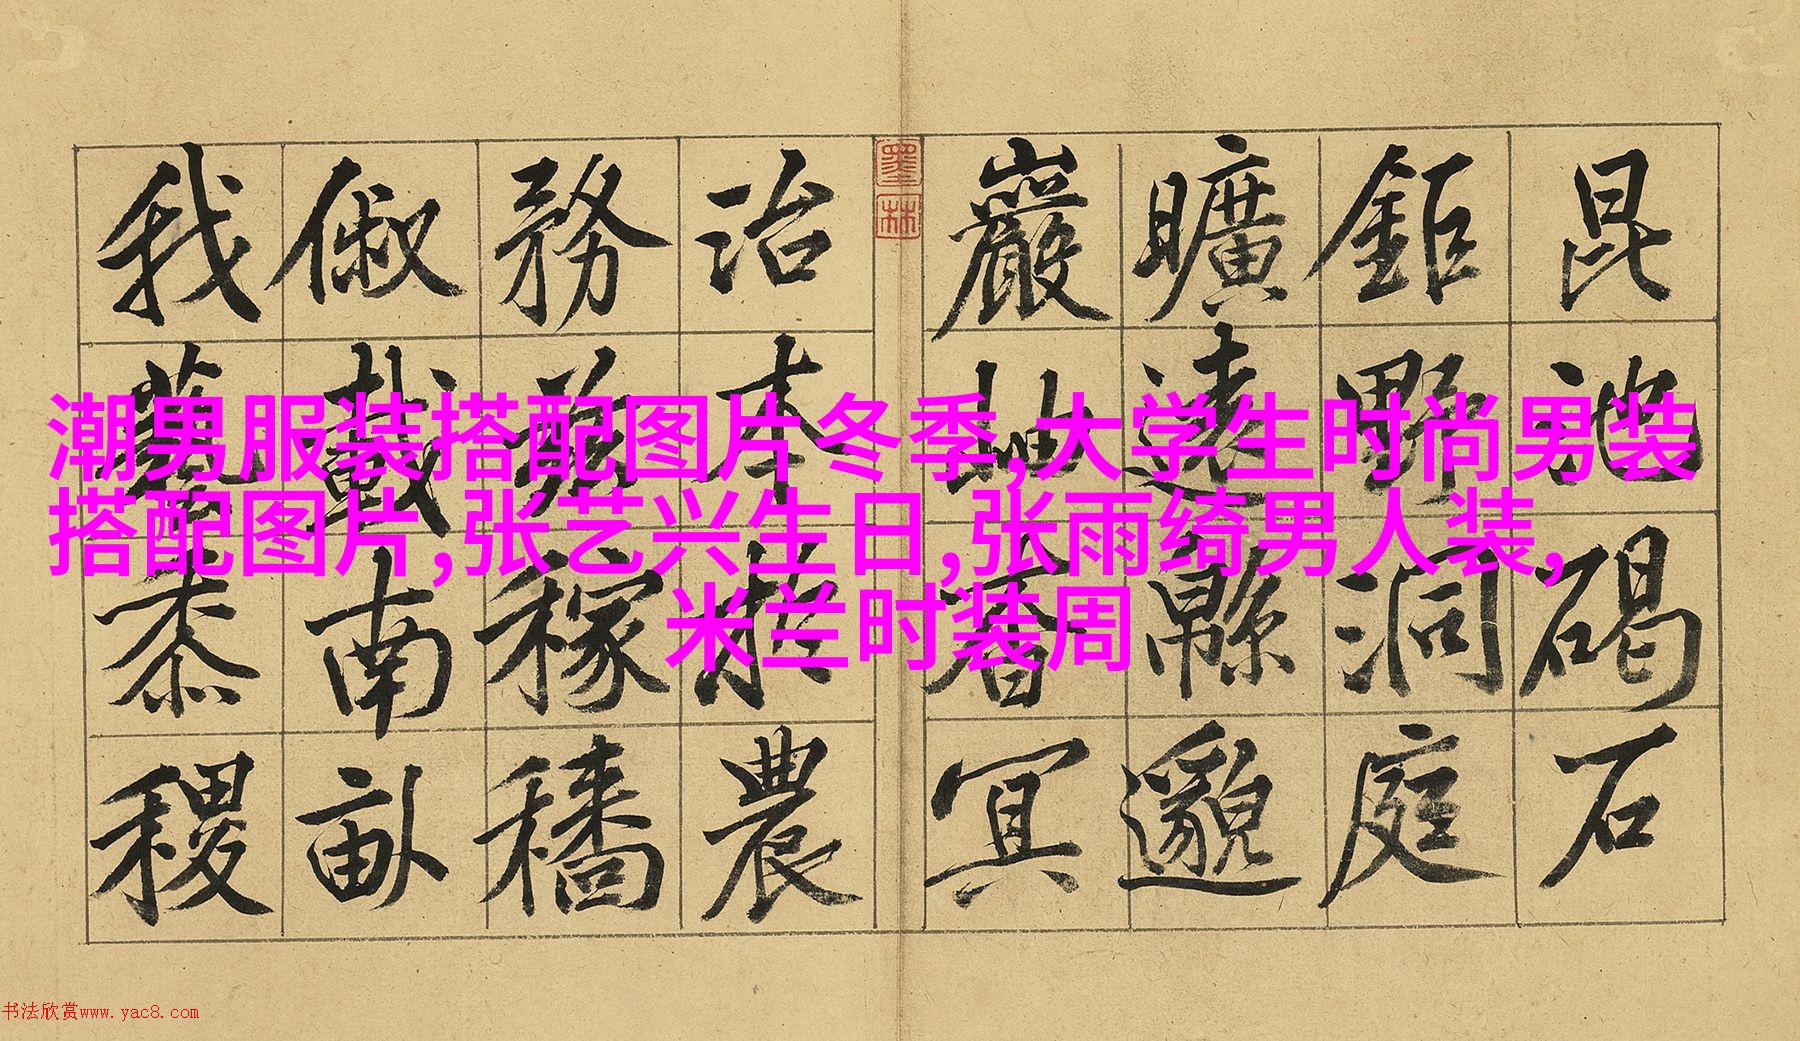 昆池碣石
鉅野洞庭
曠遠緜邈
巖岫杳冥
墨林
治本於農
務茲稼穡
俶載南畝
我藝黍稷
潮男服装搭配图片冬季,大学生时尚男装
搭配图片,张艺兴生日,张雨绮男人装,
米兰时装周
书法欣赏www.yac8.com